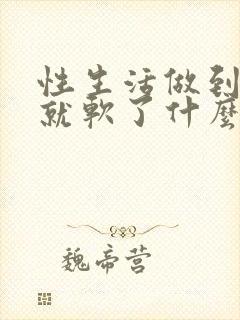 性生活做到
就軟了什麼
魏帝营